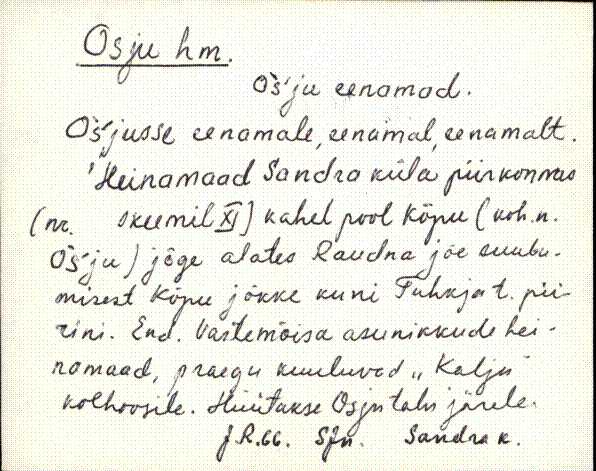 Osju hm.
Oś'ju eenamad.
Oś'jusse eenamale, eenamal, eenamalt.
'Heinamaad Sandra küla piirkonnas
(nr. skeemil XI) kahel pool Kõpu (koh.n.
Oś'ju) jõge alates Raudna jõe suubu-
misest Kõpu jõkke kuni Tuhkja t. pii-
rini. End. Vastemõisa asunikkude hei-
namaad, praegu kuuluvad "Kalju"
kolhoosile. Hüütakse Osju talu järele.
J.R.66. SJn. Sandra k.